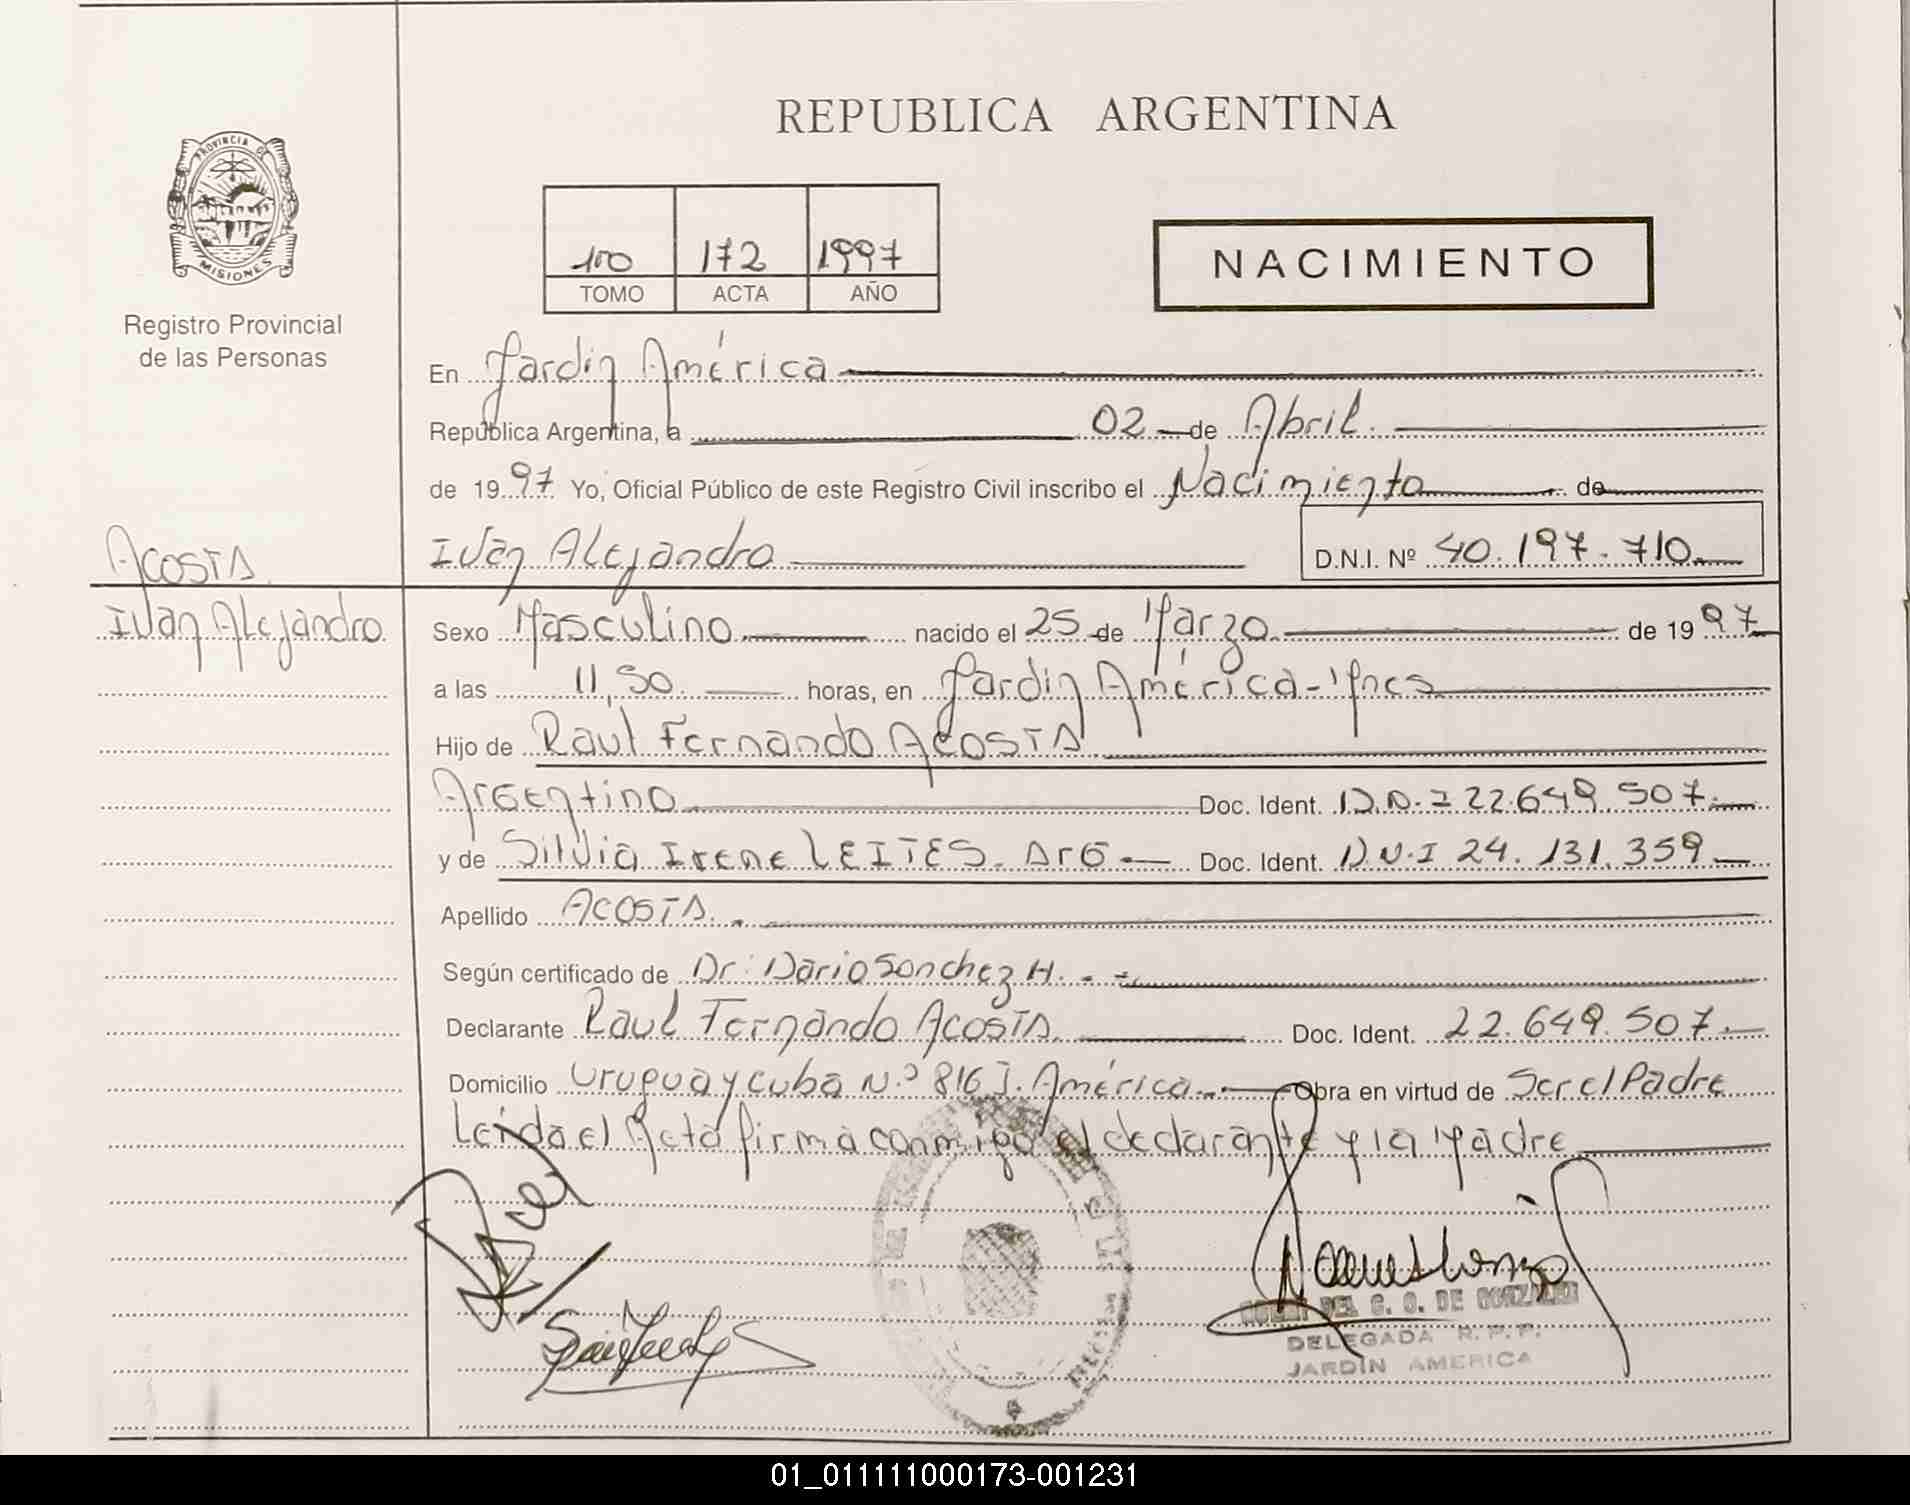 REPUBLICA ARGENTINA
PROVINCIA DE
MISIONES
Registro Provincial
de las Personas
100 172 1997
TOMO ACTA AÑO
NACIMIENTO
En Jardin América
República Argentina, a 02 de Abril
de 1997 Yo, Oficial Público de este Registro Civil inscribo el Nacimiento de
ACOSTA
Iván Alejandro D.N.I. Nº 40.197.710
Iván Alejandro
Sexo Masculino nacido el 25 de Marzo de 1997
a las 11,50 horas, en Jardin América - Mnes
Hijo de Raul Fernando ACOSTA
Argentino Doc. Ident. D.N.I 22.649.507
y de Silvia Irene LEITES. Arg Doc. Ident. D.N.I 24.131.359
Apellido ACOSTA
Según certificado de Dr: Dario Sanchez H.
Declarante Raul Fernando ACOSTA Doc. Ident. 22.649.507
Domicilio Uruguay y Cuba N.º 816 J. América Obra en virtud de Ser el Padre
Leida el Acta firma conmigo el declarante y la Madre
DEL C. G. DE GONZALEZ
DELEGADA R.P.P.
JARDIN AMERICA
01_011111000173-001231